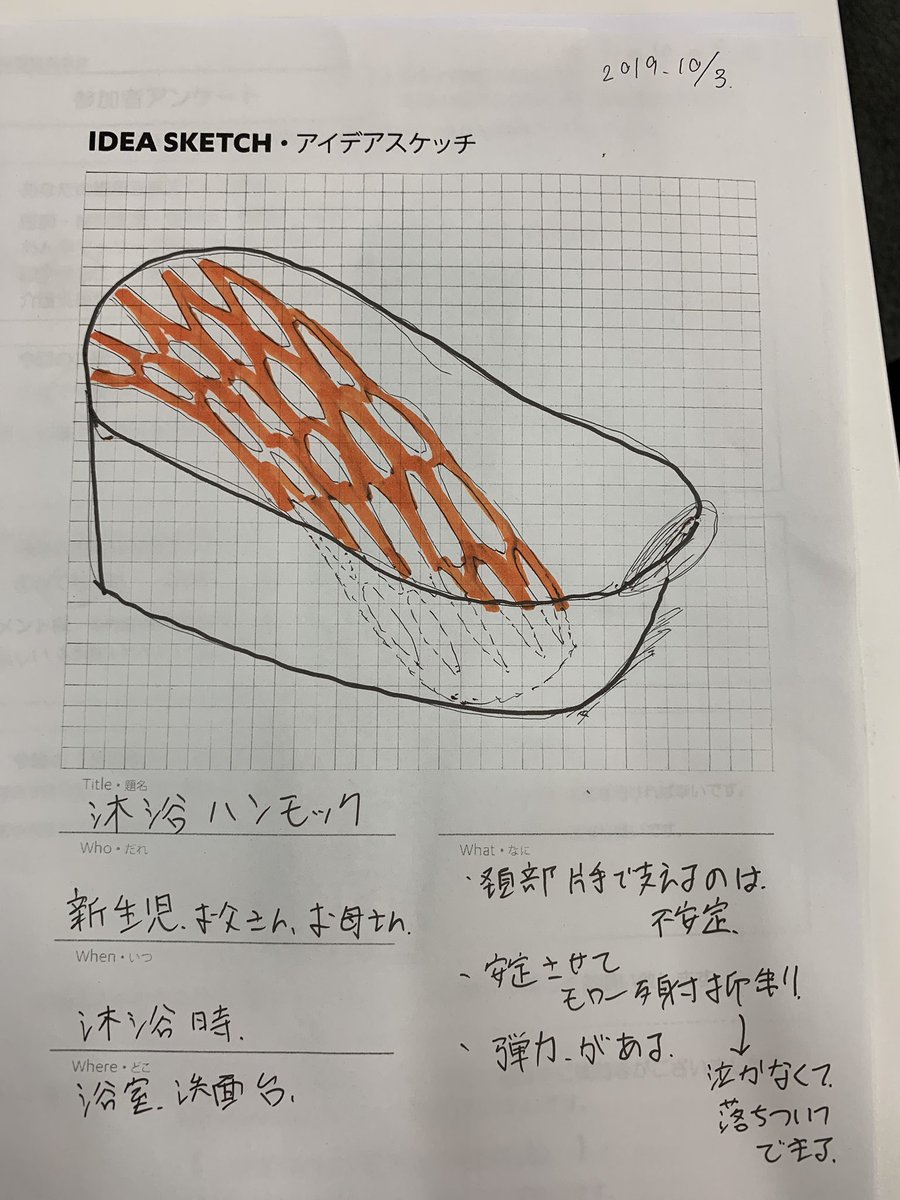 2019.10/3.
IDEA SKETCH・アイデアスケッチ
Title・題名
沐浴ハンモック
Who・だれ
新生児、お父さん、お母さん
When・いつ
沐浴時.
Where・どこ
浴室、洗面台.
What・なに
・頚部片手で支えるのは
不安定.
・安定させて
モロー反射抑制.
↓
泣かなくて
落ちついて
できる.
・弾力がある.